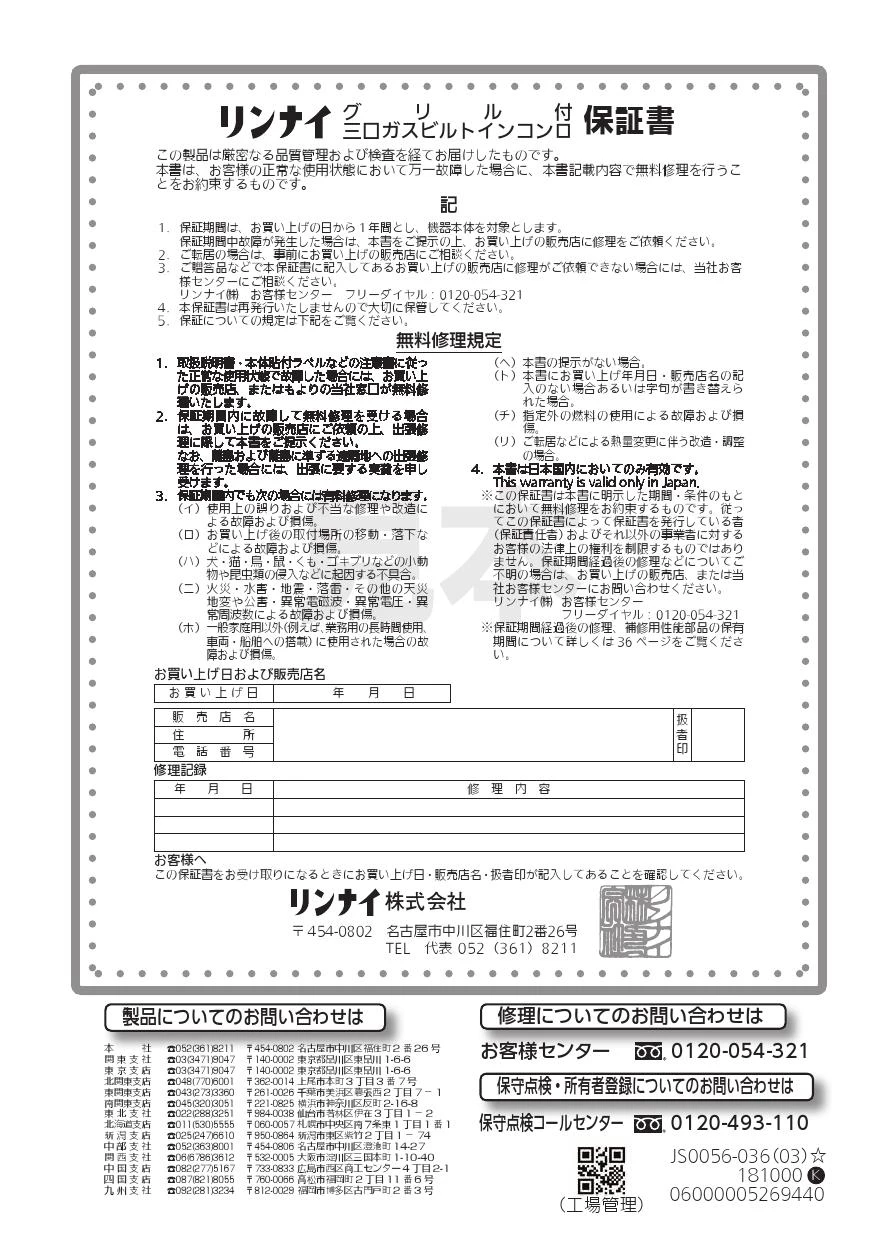 リンナイ グリル付 三口ガスビルトインコンロ 保証書
この製品は厳密なる品質管理および検査を経てお届けしたものです。
本書は、お客様の正常な使用状態において万一故障した場合に、本書記載内容で無料修理を行うこ
とをお約束するものです。
記
1. 保証期間は、お買い上げの日から1年間とし、機器本体を対象とします。
保証期間中故障が発生した場合は、本書をご提示の上、お買い上げの販売店に修理をご依頼ください。
2. ご転居の場合は、事前にお買い上げの販売店にご相談ください。
3. ご贈答品などで本保証書に記入してあるお買い上げの販売店に修理がご依頼できない場合には、当社お客
様センターにご相談ください。
リンナイ㈱ お客様センター フリーダイヤル：0120-054-321
4. 本保証書は再発行いたしませんので大切に保管してください。
5. 保証についての規定は下記をご覧ください。
無料修理規定
1. 取扱説明書・本体貼付ラベルなどの注意書に従っ
た正常な使用状態で故障した場合には、お買い上
げの販売店、またはもよりの当社窓口が無料修
理いたします。
2. 保証期間内に故障して無料修理を受ける場合
は、お買い上げの販売店にご依頼の上、出張修
理に際して本書をご提示ください。
なお、離島および離島に準ずる遠隔地への出張修
理を行った場合には、出張に要する実費を申し
受けます。
3. 保証期間内でも次の場合には有料修理になります。
（イ）使用上の誤りおよび不当な修理や改造に
よる故障および損傷。
（ロ）お買い上げ後の取付場所の移動・落下な
どによる故障および損傷。
（ハ）犬・猫・鳥・鼠・くも・ゴキブリなどの小動
物や昆虫類の侵入などに起因する不具合。
（ニ）火災・水害・地震・落雷・その他の天災
地変や公害・異常電磁波・異常電圧・異
常周波数による故障および損傷。
（ホ）一般家庭用以外（例えば、業務用の長時間使用、
車両・船舶への搭載）に使用された場合の故
障および損傷。
（ヘ）本書の提示がない場合。
（ト）本書にお買い上げ年月日・販売店名の記
入のない場合あるいは字句が書き替えら
れた場合。
（チ）指定外の燃料の使用による故障および損
傷。
（リ）ご転居などによる熱量変更に伴う改造・調整
の場合。
4. 本書は日本国内においてのみ有効です。
This warranty is valid only in Japan.
※この保証書は本書に明示した期間・条件のもと
において無料修理をお約束するものです。従っ
てこの保証書によって保証書を発行している者
（保証責任者）およびそれ以外の事業者に対する
お客様の法律上の権利を制限するものではあり
ません。保証期間経過後の修理などについてご
不明の場合は、お買い上げの販売店、または当
社お客様センターにお問い合わせください。
リンナイ㈱ お客様センター
フリーダイヤル：0120-054-321
※保証期間経過後の修理、補修用性能部品の保有
期間について詳しくは36ページをご覧くださ
い。
見本
お買い上げ日および販売店名
お買い上げ日 年 月 日
販売店名
住所
電話番号
扱者印
修理記録
年 月 日 修理内容
お客様へ
この保証書をお受け取りになるときにお買い上げ日・販売店名・扱者印が記入してあることを確認してください。
リンナイ株式会社
〒454-0802 名古屋市中川区福住町2番26号
TEL 代表 052（361）8211
製品についてのお問い合わせは
本社 ☎052(361)8211 〒454-0802 名古屋市中川区福住町2番26号
関東支社 ☎03(3471)9047 〒140-0002 東京都品川区東品川1-6-6
東京支店 ☎03(3471)9047 〒140-0002 東京都品川区東品川1-6-6
北関東支店 ☎048(770)6001 〒362-0014 上尾市本町3丁目3番7号
東関東支店 ☎043(273)3360 〒261-0026 千葉市美浜区幕張西2丁目7−1
南関東支店 ☎045(320)3051 〒221-0825 横浜市神奈川区反町2-16-8
東北支社 ☎022(288)3251 〒984-0038 仙台市若林区伊在3丁目1−2
北海道支店 ☎011(530)5555 〒060-0057 札幌市中央区南7条東1丁目1番1
新潟支店 ☎025(247)6610 〒950-0864 新潟市東区紫竹2丁目1−74
中部支社 ☎052(363)8001 〒454-0806 名古屋市中川区澄池町14-27
関西支社 ☎06(6786)3612 〒532-0005 大阪市淀川区三国本町1-10-40
中国支店 ☎082(277)5167 〒733-0833 広島市西区商工センター4丁目2-1
四国支店 ☎087(821)8055 〒760-0066 高松市福岡町2丁目11番6号
九州支社 ☎092(281)3234 〒812-0029 福岡市博多区古門戸町2番3号
修理についてのお問い合わせは
お客様センター 0120-054-321
保守点検・所有者登録についてのお問い合わせは
保守点検コールセンター 0120-493-110
（工場管理）
JS0056-036(03)☆
181000 K
06000005269440